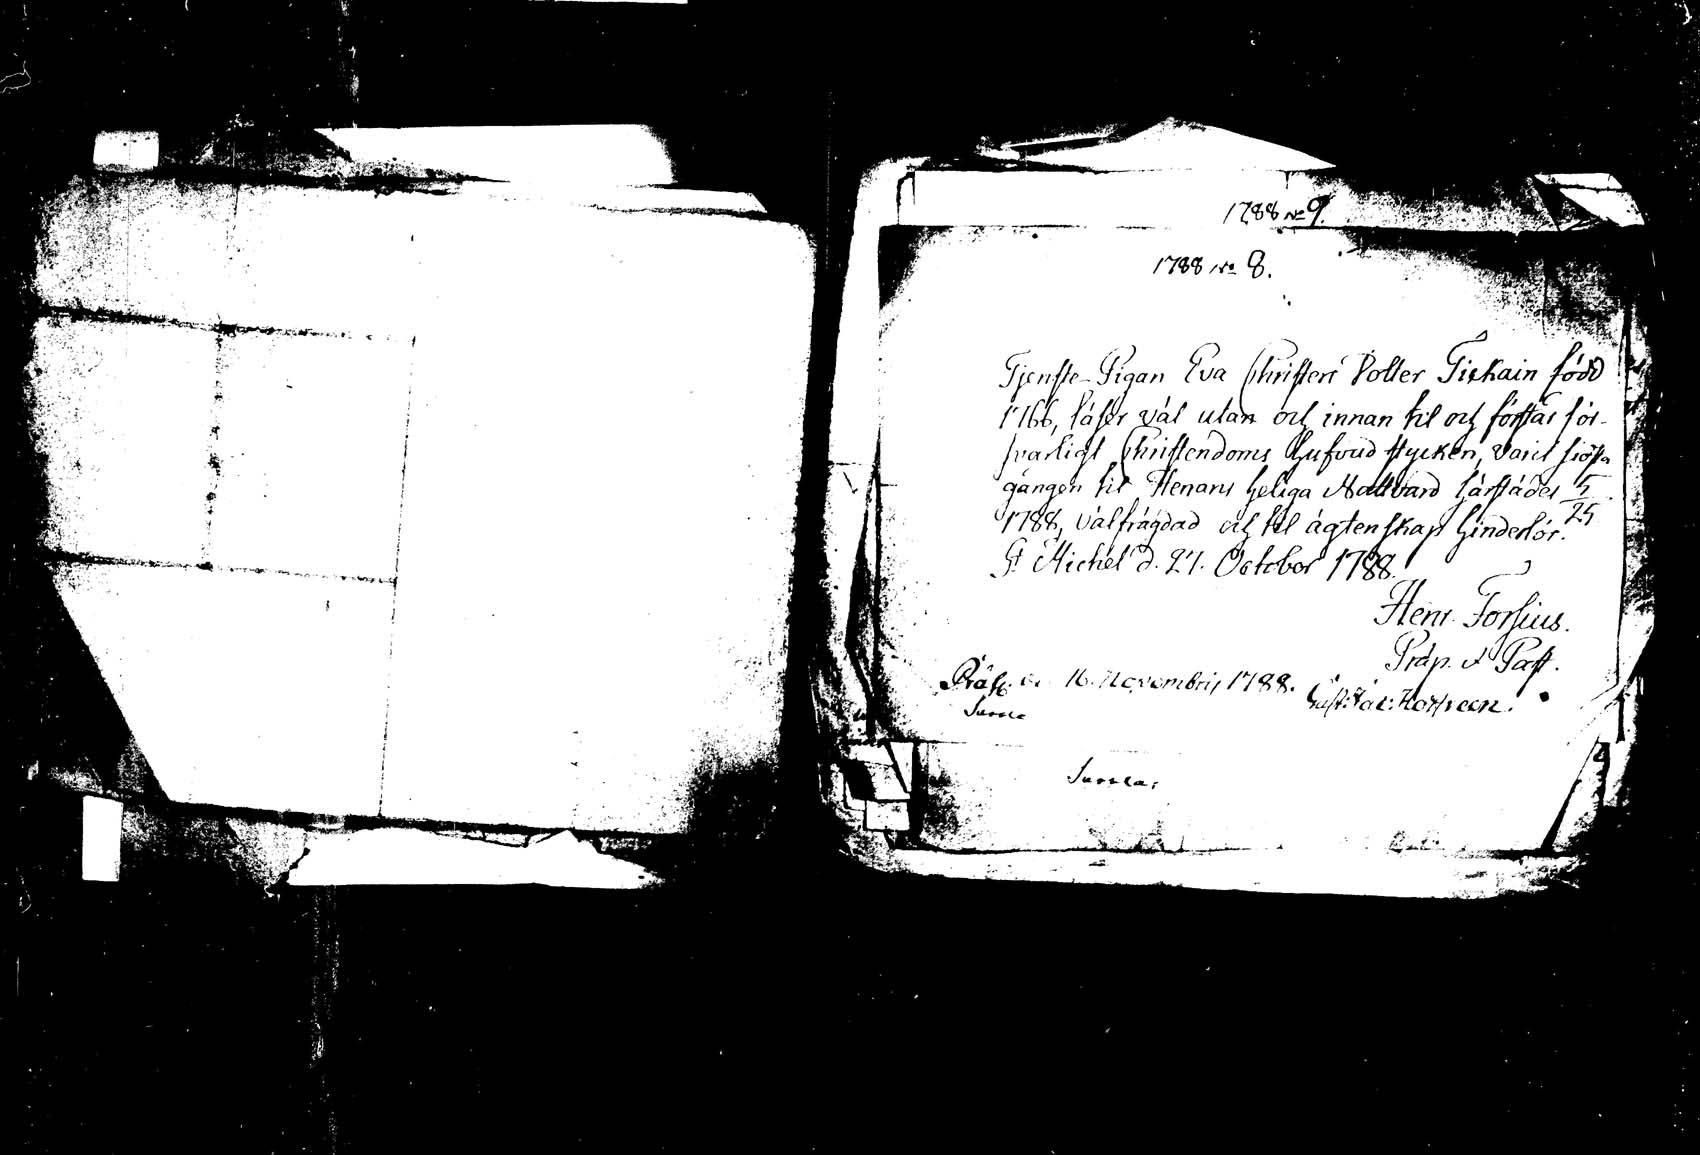 1788 No 9.
1788 No 8.
Tjenste-Pigan Eva Christers Dotter Tiekain född
1766, läser väl utan och innan til och förstår för-
svarligt Christendoms hufvud stycken, varit sista
gången til Herrans heliga Nattvard härstädes 5/25
1788, välfrägdad och til ägtenskap hinderlös.
St Michel d. 27. October 1788.
Henr. Forsius.
Præp. & Past.
Præs. 16. Novembris 1788.